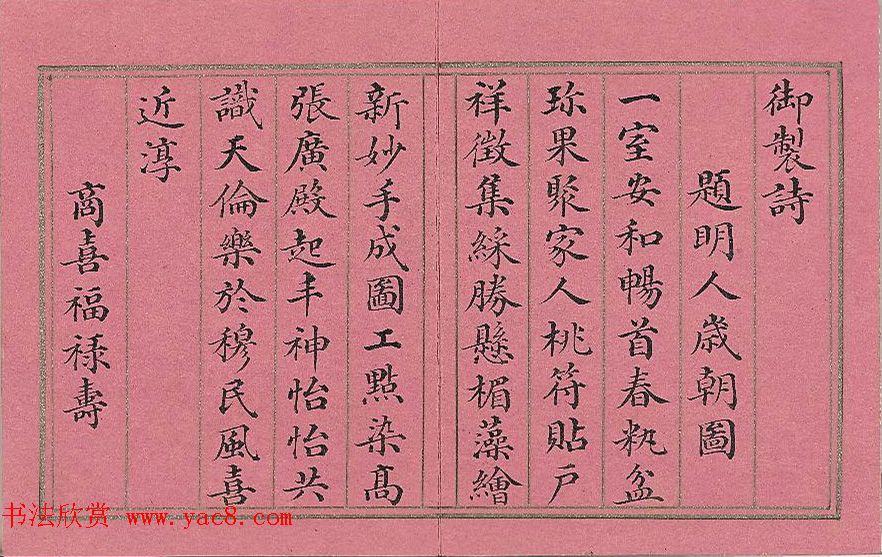 御製詩
題明人歲朝圖
一室安和暢首春執盆
珎果聚家人桃符貼戶
祥徵集綵勝懸楣藻繪
新妙手成圖工點染髙
張廣殿起丰神怡怡共
識天倫樂於穆民風喜
近淳
商喜福祿壽
书法欣赏 www.yac8.com